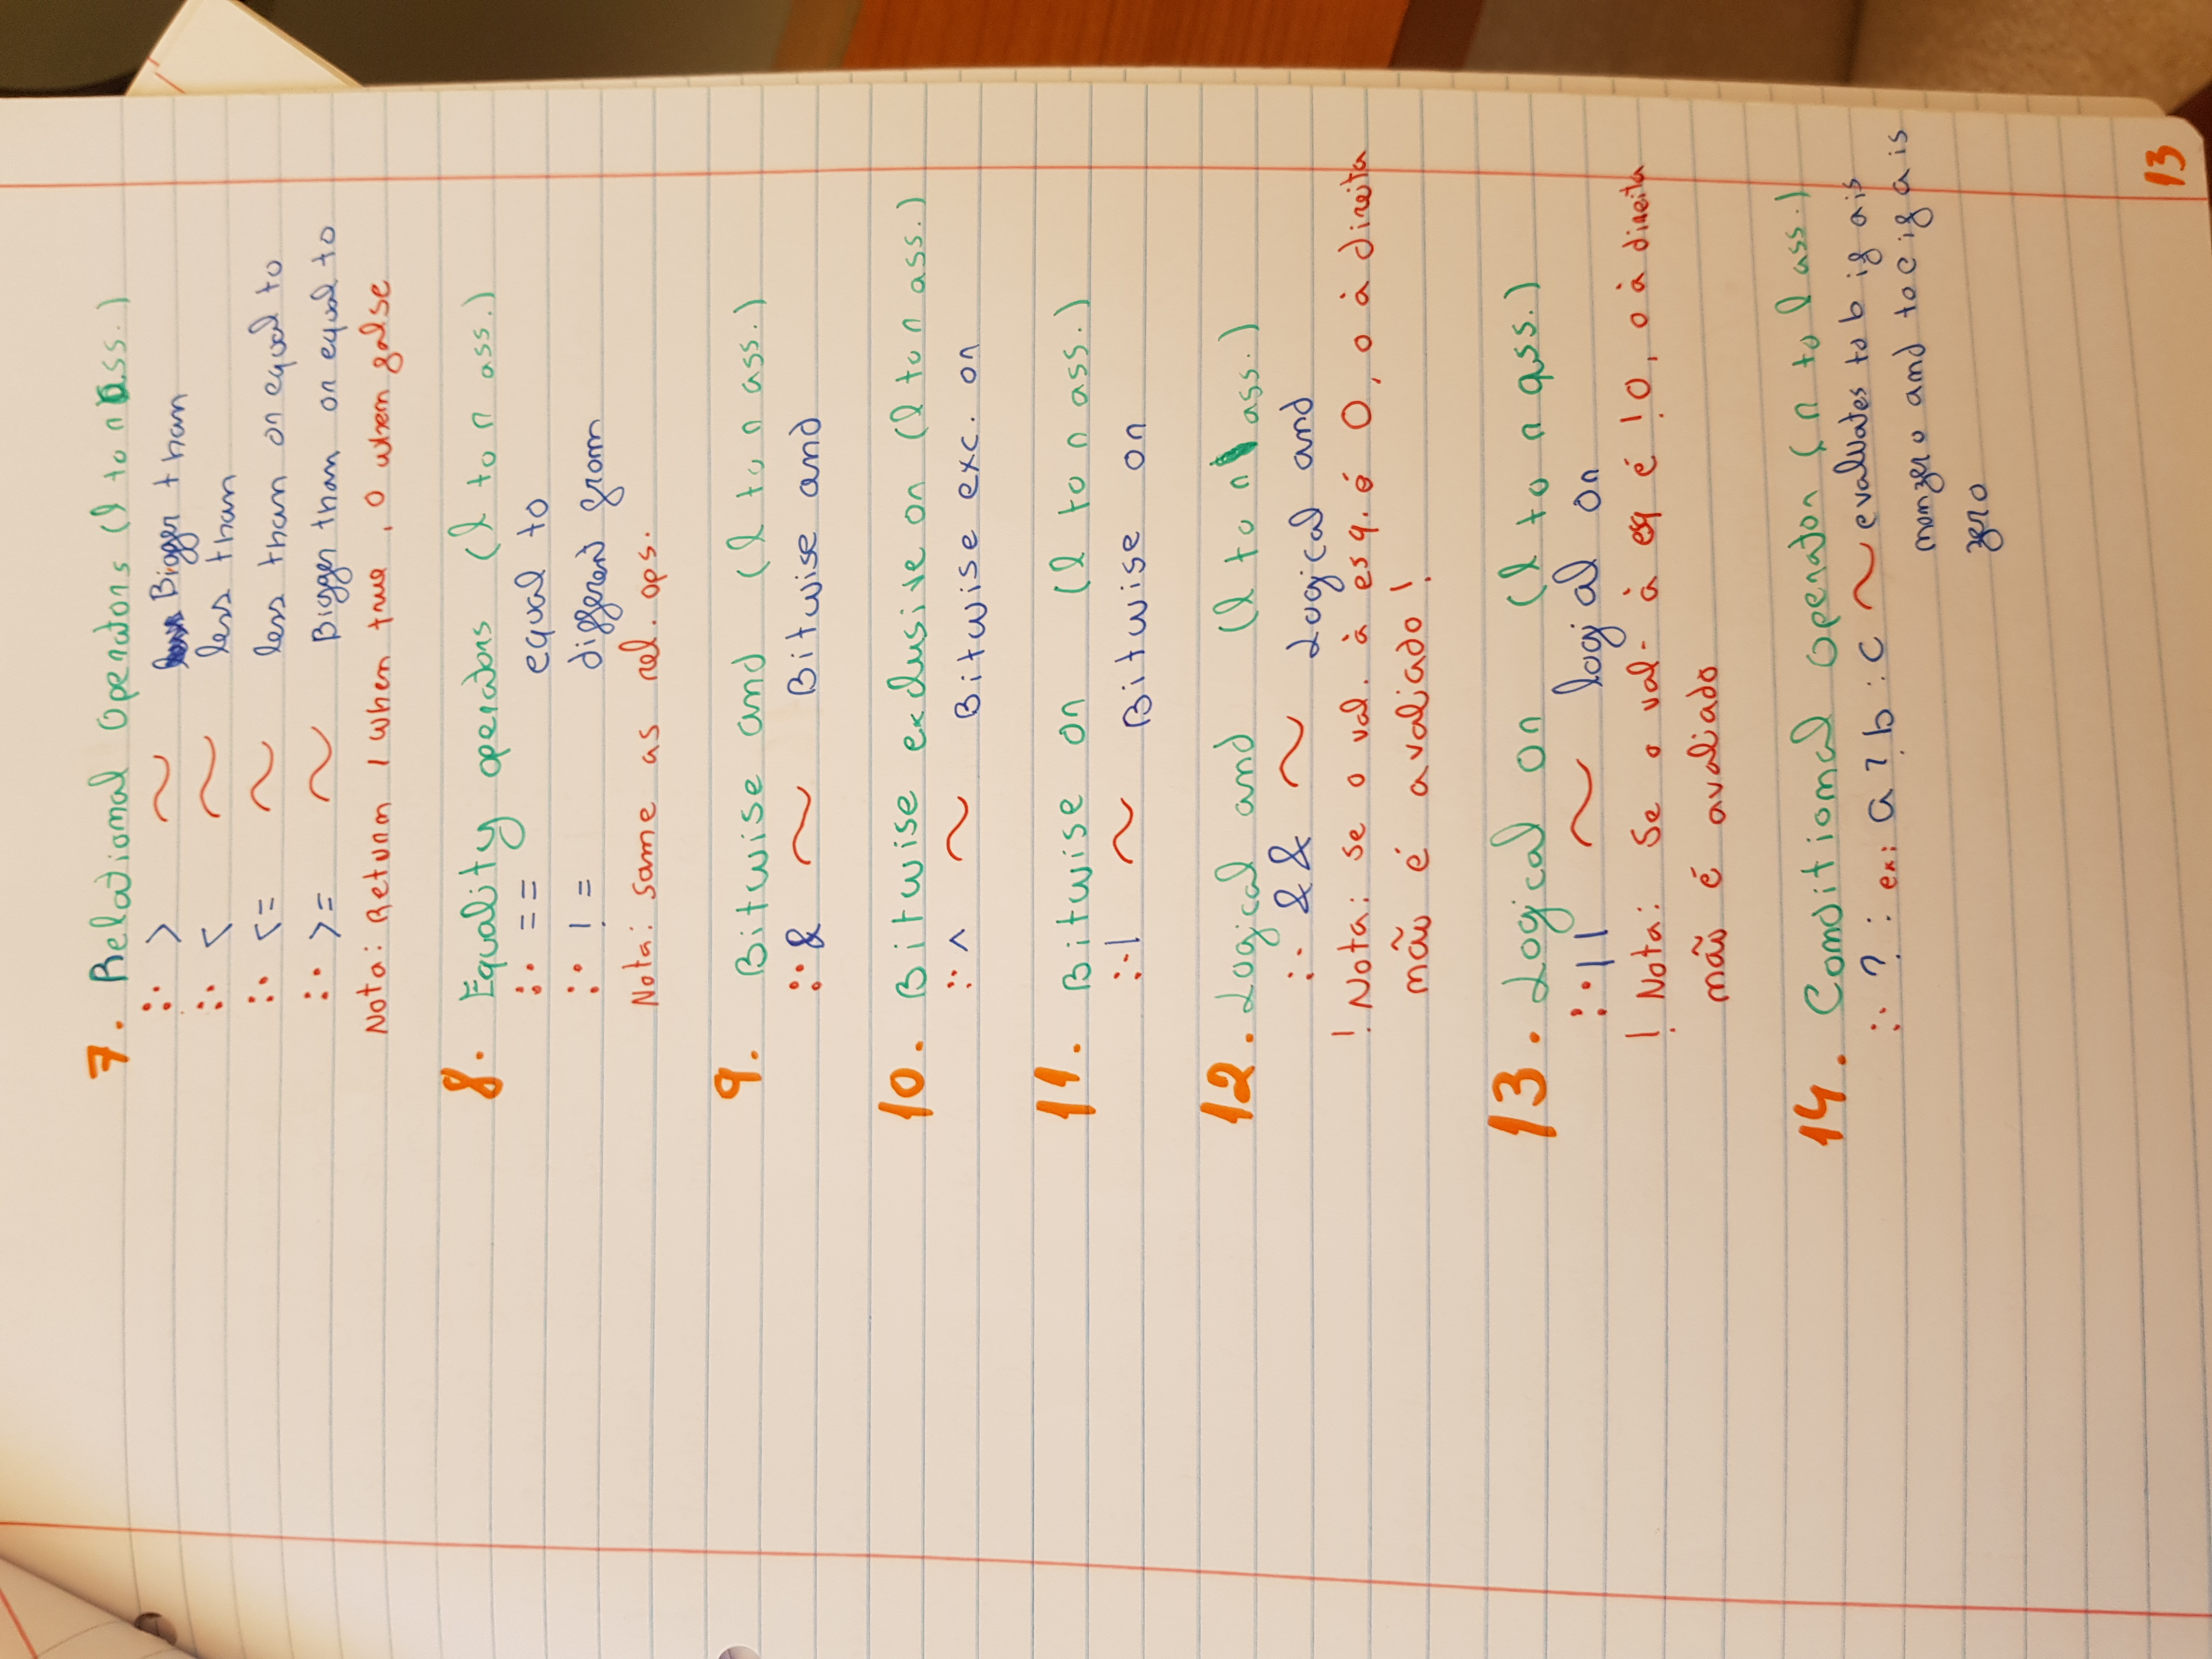 7. Relational Operators (l to r ass.)
:· > ~ Bigger than
:· < ~ less than
:· <= ~ less than or equal to
:· >= ~ Bigger than or equal to
Nota: Return 1 when true, 0 when false
8. Equality operators (l to r ass.)
:· == equal to
:· != different from
Nota: same as rel. ops.
9. Bitwise and (l to r ass.)
:· & ~ Bitwise and
10. Bitwise exclusive or (l to r ass.)
:· ^ ~ Bitwise exc. or
11. Bitwise or (l to r ass.)
:· | ~ Bitwise or
12. Logical and (l to r ass.)
:· && ~ Logical and
! Nota: se o val. à esq. é 0, o à direita
não é avaliado!
13. Logical or (l to r ass.)
:· || ~ logial or
! Nota: Se o val. à esq é !0, o à direita
não é avaliado
14. Conditional Operator (r to l ass.)
:· ? : ex: a ? b : c ~ evaluates to b if a is
nonzero and to c if a is
zero
13